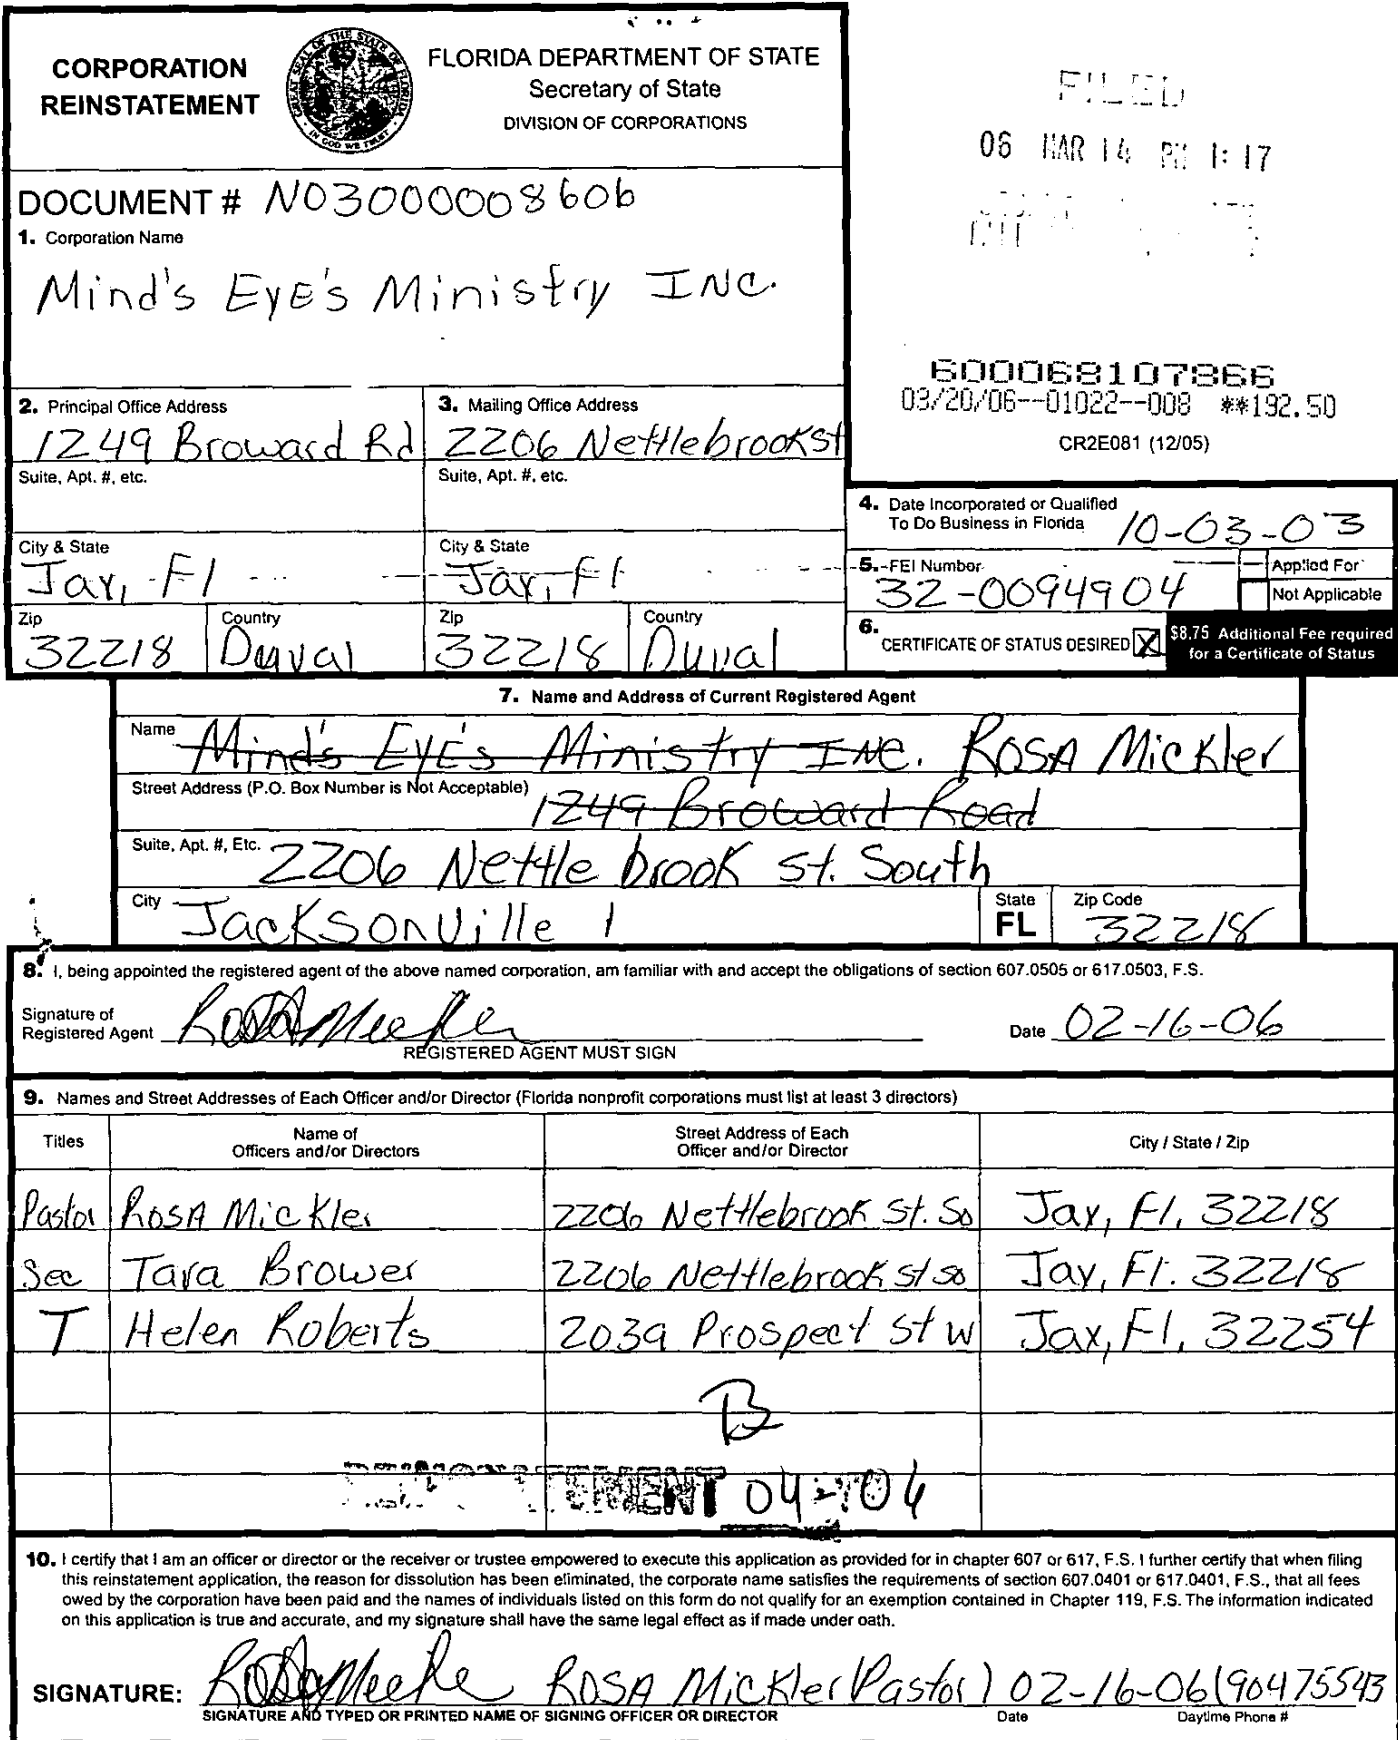 CORPORATION
REINSTATEMENT
GREAT SEAL OF THE STATE OF FLORIDA
IN GOD WE TRUST
FLORIDA DEPARTMENT OF STATE
Secretary of State
DIVISION OF CORPORATIONS
FILED
06 MAR 14 PM 1:17
DOCUMENT # N03000008606
1. Corporation Name
Mind's EyE's Ministry INC.
600068107866
03/20/06--01022--008 **192.50
CR2E081 (12/05)
2. Principal Office Address
1249 Broward Rd
3. Mailing Office Address
2206 Nettlebrook st
Suite, Apt. #, etc.
Suite, Apt. #, etc.
4. Date Incorporated or Qualified
To Do Business in Florida 10-03-03
City & State
Jax, Fl
City & State
Jax, Fl
5. FEI Number
32-0094904
Applied For
Not Applicable
Zip
32218
Country
Duval
Zip
32218
Country
Duval
6. CERTIFICATE OF STATUS DESIRED X
$8.75 Additional Fee required
for a Certificate of Status
7. Name and Address of Current Registered Agent
Name Mind's EyE's Ministry INC. ROSA Mickler
Street Address (P.O. Box Number is Not Acceptable) 1249 Broward Road
Suite, Apt. #, Etc. 2206 Nettle brook st. South
City Jacksonville
State
FL
Zip Code
32218
8. I, being appointed the registered agent of the above named corporation, am familiar with and accept the obligations of section 607.0505 or 617.0503, F.S.
Signature of
Registered Agent
Date 02-16-06
REGISTERED AGENT MUST SIGN
9. Names and Street Addresses of Each Officer and/or Director (Florida nonprofit corporations must list at least 3 directors)
Titles
Name of
Officers and/or Directors
Street Address of Each
Officer and/or Director
City / State / Zip
Pastor ROSA Mickler 2206 Nettlebrook St. So Jax, Fl, 32218
Sec Tara Brower 2206 Nettlebrook st so Jax, Fl. 32218
T Helen Roberts 2039 Prospect st W Jax, Fl, 32254
B
REINSTATEMENT 04-06
10. I certify that I am an officer or director or the receiver or trustee empowered to execute this application as provided for in chapter 607 or 617, F.S. I further certify that when filing
this reinstatement application, the reason for dissolution has been eliminated, the corporate name satisfies the requirements of section 607.0401 or 617.0401, F.S., that all fees
owed by the corporation have been paid and the names of individuals listed on this form do not qualify for an exemption contained in Chapter 119, F.S. The information indicated
on this application is true and accurate, and my signature shall have the same legal effect as if made under oath.
SIGNATURE: ROSA Mickler (Pastor) 02-16-06 (904 75543
SIGNATURE AND TYPED OR PRINTED NAME OF SIGNING OFFICER OR DIRECTOR
Date
Daytime Phone #